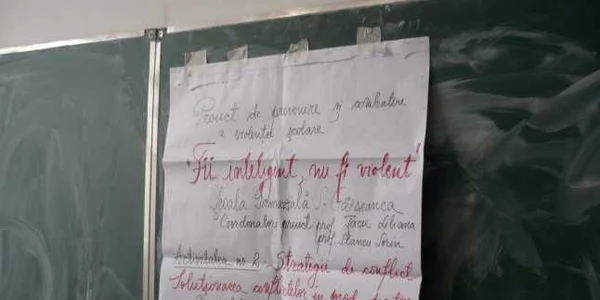 Proiect de prevenire și combatere
a violenței școlare
"Fii inteligent, nu fi violent"
Școala Gimnazială
Coordonatori proiect prof. Liliana
prof. Stancu Sorin
Activitatea nr. 2 - Strategii de conflict
Soluționarea conflictelor în mod